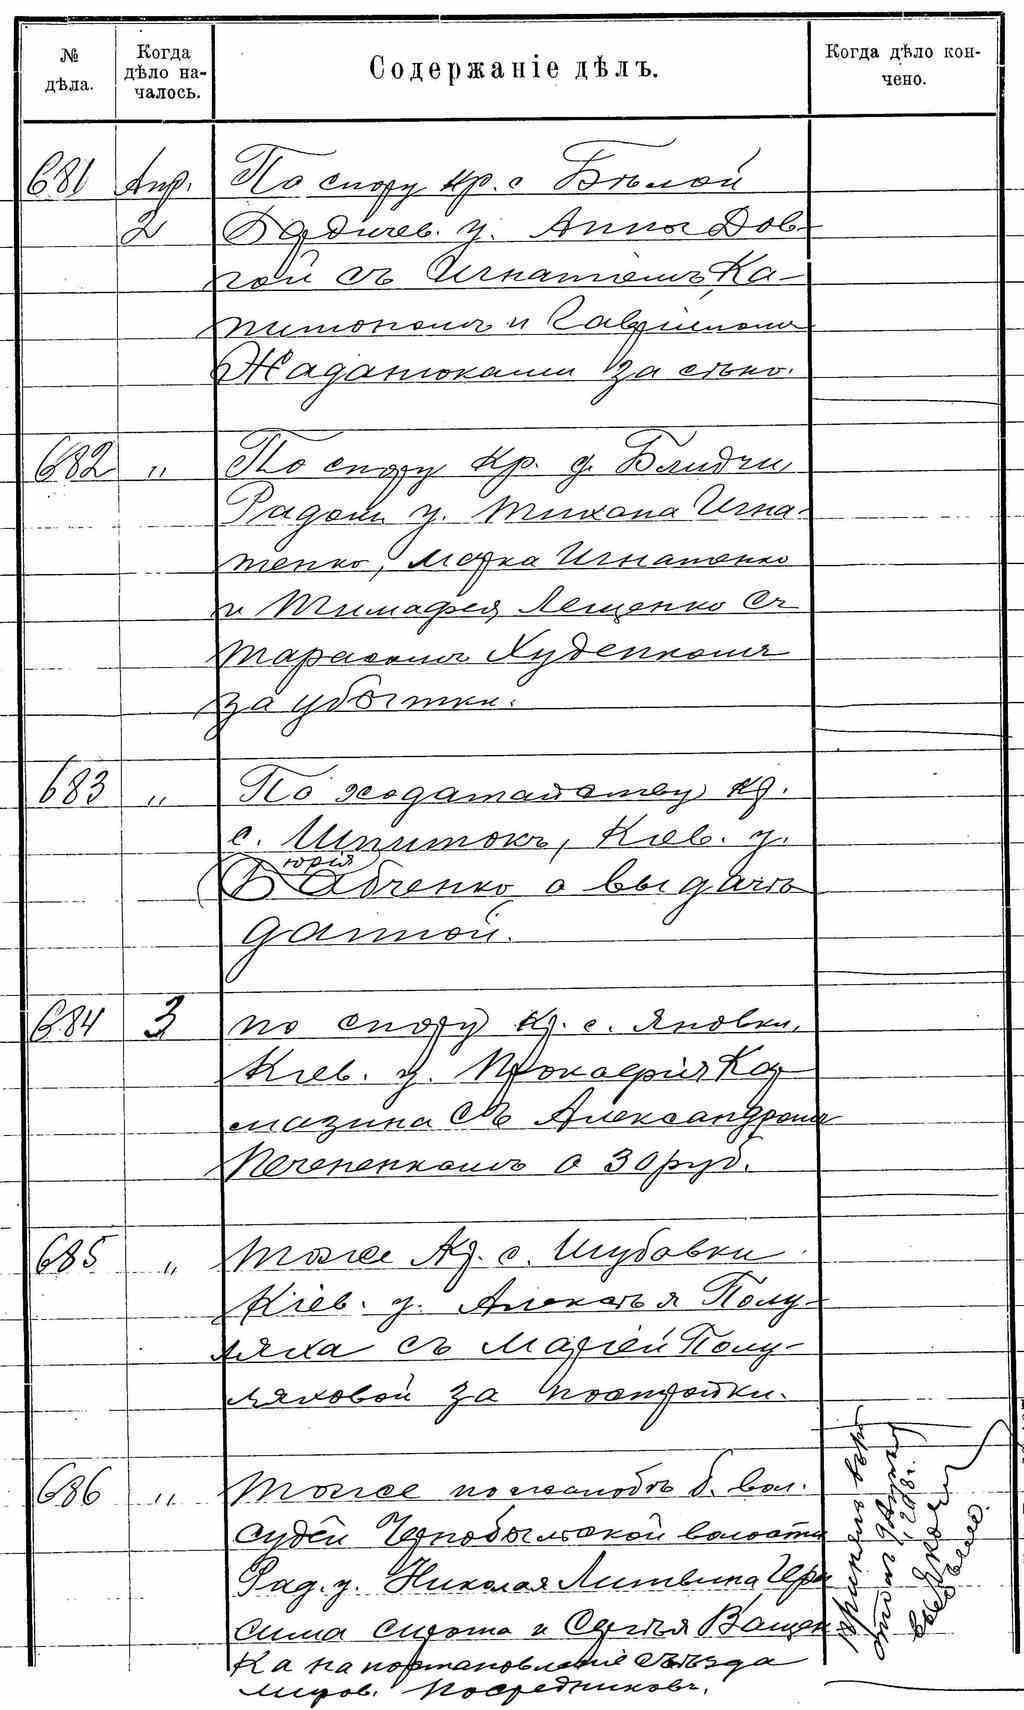 № дѣла.
Когда дѣло началось.
Содержаніе дѣлъ.
Когда дѣло кончено.
681 Апр. 2
По спору кр. с Бѣлой
Бердичев. у. Анны Дов-
гой съ Игнатіемъ, Ка-
питономъ и Гавріиломъ
Жаданюками за сѣно.
682 "
По спору кр. д. Блидчи
Радом. у. Тихона Игна-
тенко, Марка Игнатенко
и Тимофея Лещенко съ
Тарасомъ Худенкомъ
за убытки.
683 "
По ходатайству кр.
с. Шпитокъ, Кіев. у.
Юрія
Бабченко о выдачѣ
данной.
684 3
по спору кр. с. Яновки,
Кіев. у. Прокофія Кар-
мазина съ Александромъ
Печененкомъ о 30 руб.
685 "
тоже кр. с. Шубовки
Кіев. у. Алексѣя Полу-
ляха съ Маріей Полу-
ляховой за постройки.
686 "
тоже по жалобѣ б. вол.
судей Чернобыльской волости
Рад. у. Николая Литвина Гера
сима Сирота и Сергѣя Ващен-
ка на постановленіе съѣзда
миров. посредниковъ.